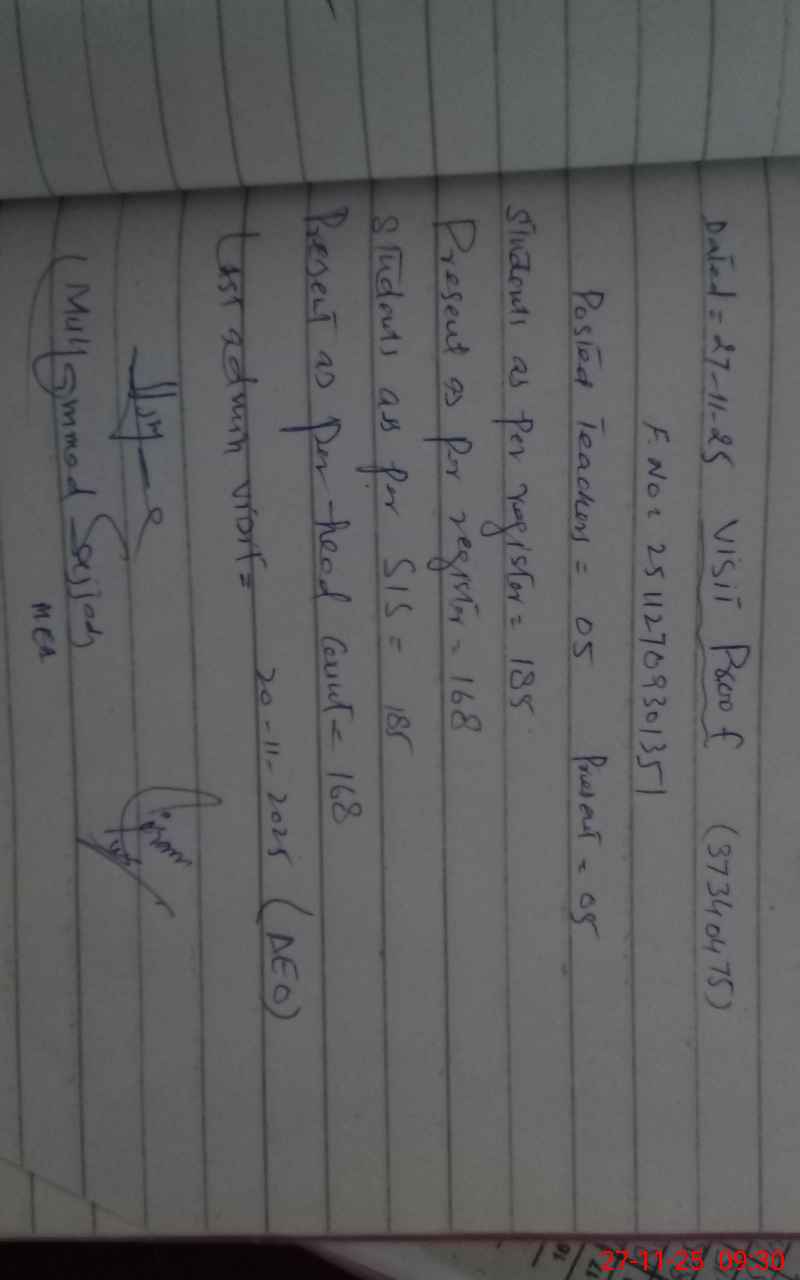 Dated = 27-11-25 Visit Proof (37340475)
F.No: 25112709301351
Posted Teachers = 05 Present = 05
Students as per register = 185
Present as per register = 168
Students as per SIS = 185
Present as per head Count = 168
Last admin visit = 20-11-2025 (AEO)
(Muhammad Sajjad)
MEA
27-11-25 09:30